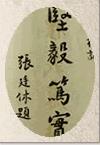 堅毅篤實
張廷休題